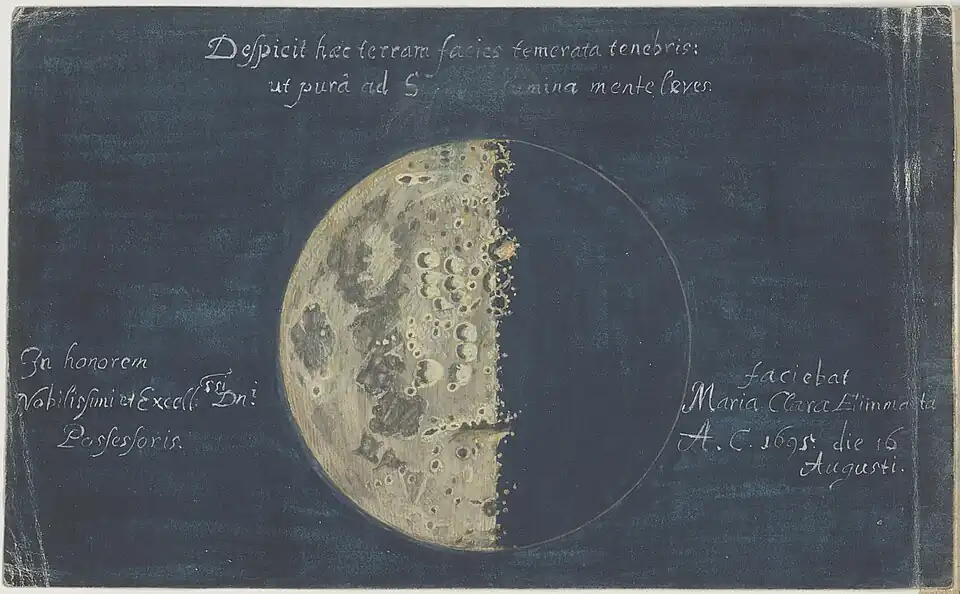 Despicit hæc terram facies temerata tenebris:
ut purâ ad S mina mente leves.
In honorem
Nobilissimi et Excell. ssi Dni
Possessoris.
faciebat
Maria Clara Eimmarta
A. C. 1695. die 16
Augusti.